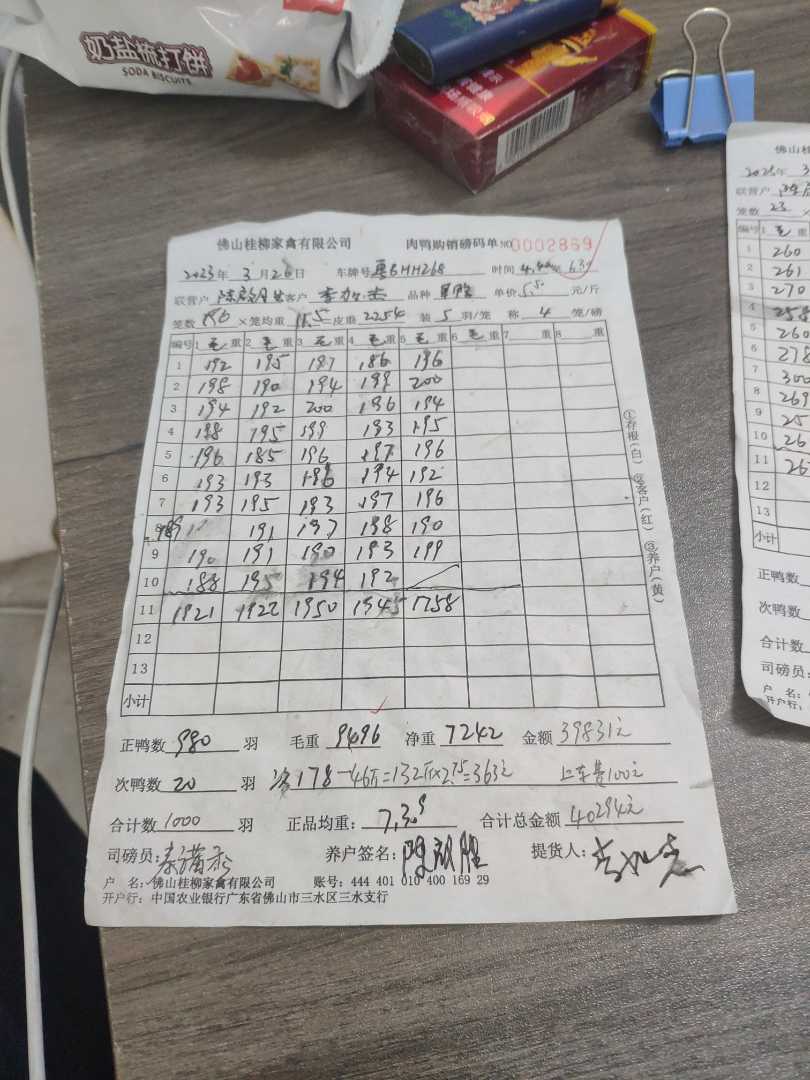 奶盐梳打饼
SODA BISCUITS
佛山桂柳家禽有限公司 肉鸭购销磅码单 NO 0002869
2023年 3月26日 车牌号 粤 时间
联营户 陈 客户 李加 品种 单价 5.5 元/斤
笼数 196 ×笼均重 11.5 皮重 2254 装 5 羽/笼 称 4 笼/磅
编号 1 毛 重 2 毛 重 3 毛 重 4 毛 重 5 毛 重 6 毛 重 7 重 8 重
1 192 195 187 186 196
2 198 190 194 199 200
3 194 192 200 196 194
4 188 195 199 193 195
5 196 185 196 197 196
6 193 193 196 194 192
7 193 195 193 197 196
8 189 191 197 198 190
9 190 191 190 193 199
10 188 195 194 192
11 1921 1922 1950 1945 1758
12
13
小计
①存根(白) ②客户(红) ③养户(黄)
正鸭数 980 羽 毛重 9496 净重 7242 金额 39831元
次鸭数 20 羽 178-46斤=132斤×2.75=363元 上车费100元
合计数 1000 羽 正品均重: 7.39 合计总金额 40294元
司磅员: 养户签名: 陈 提货人: 李加
户 名: 佛山桂柳家禽有限公司 账号: 444 401 010 400 169 29
开户行: 中国农业银行广东省佛山市三水区三水支行
佛山桂
联营户
笼数 23
编号 1 毛 重
1 260
2 261
3 270
4 258
5 260
6 278
7 300
8 269
9 25
10 26
11 26
12
13
小计
正鸭数
次鸭数
合计数
司磅员:
户 名:
开户行: